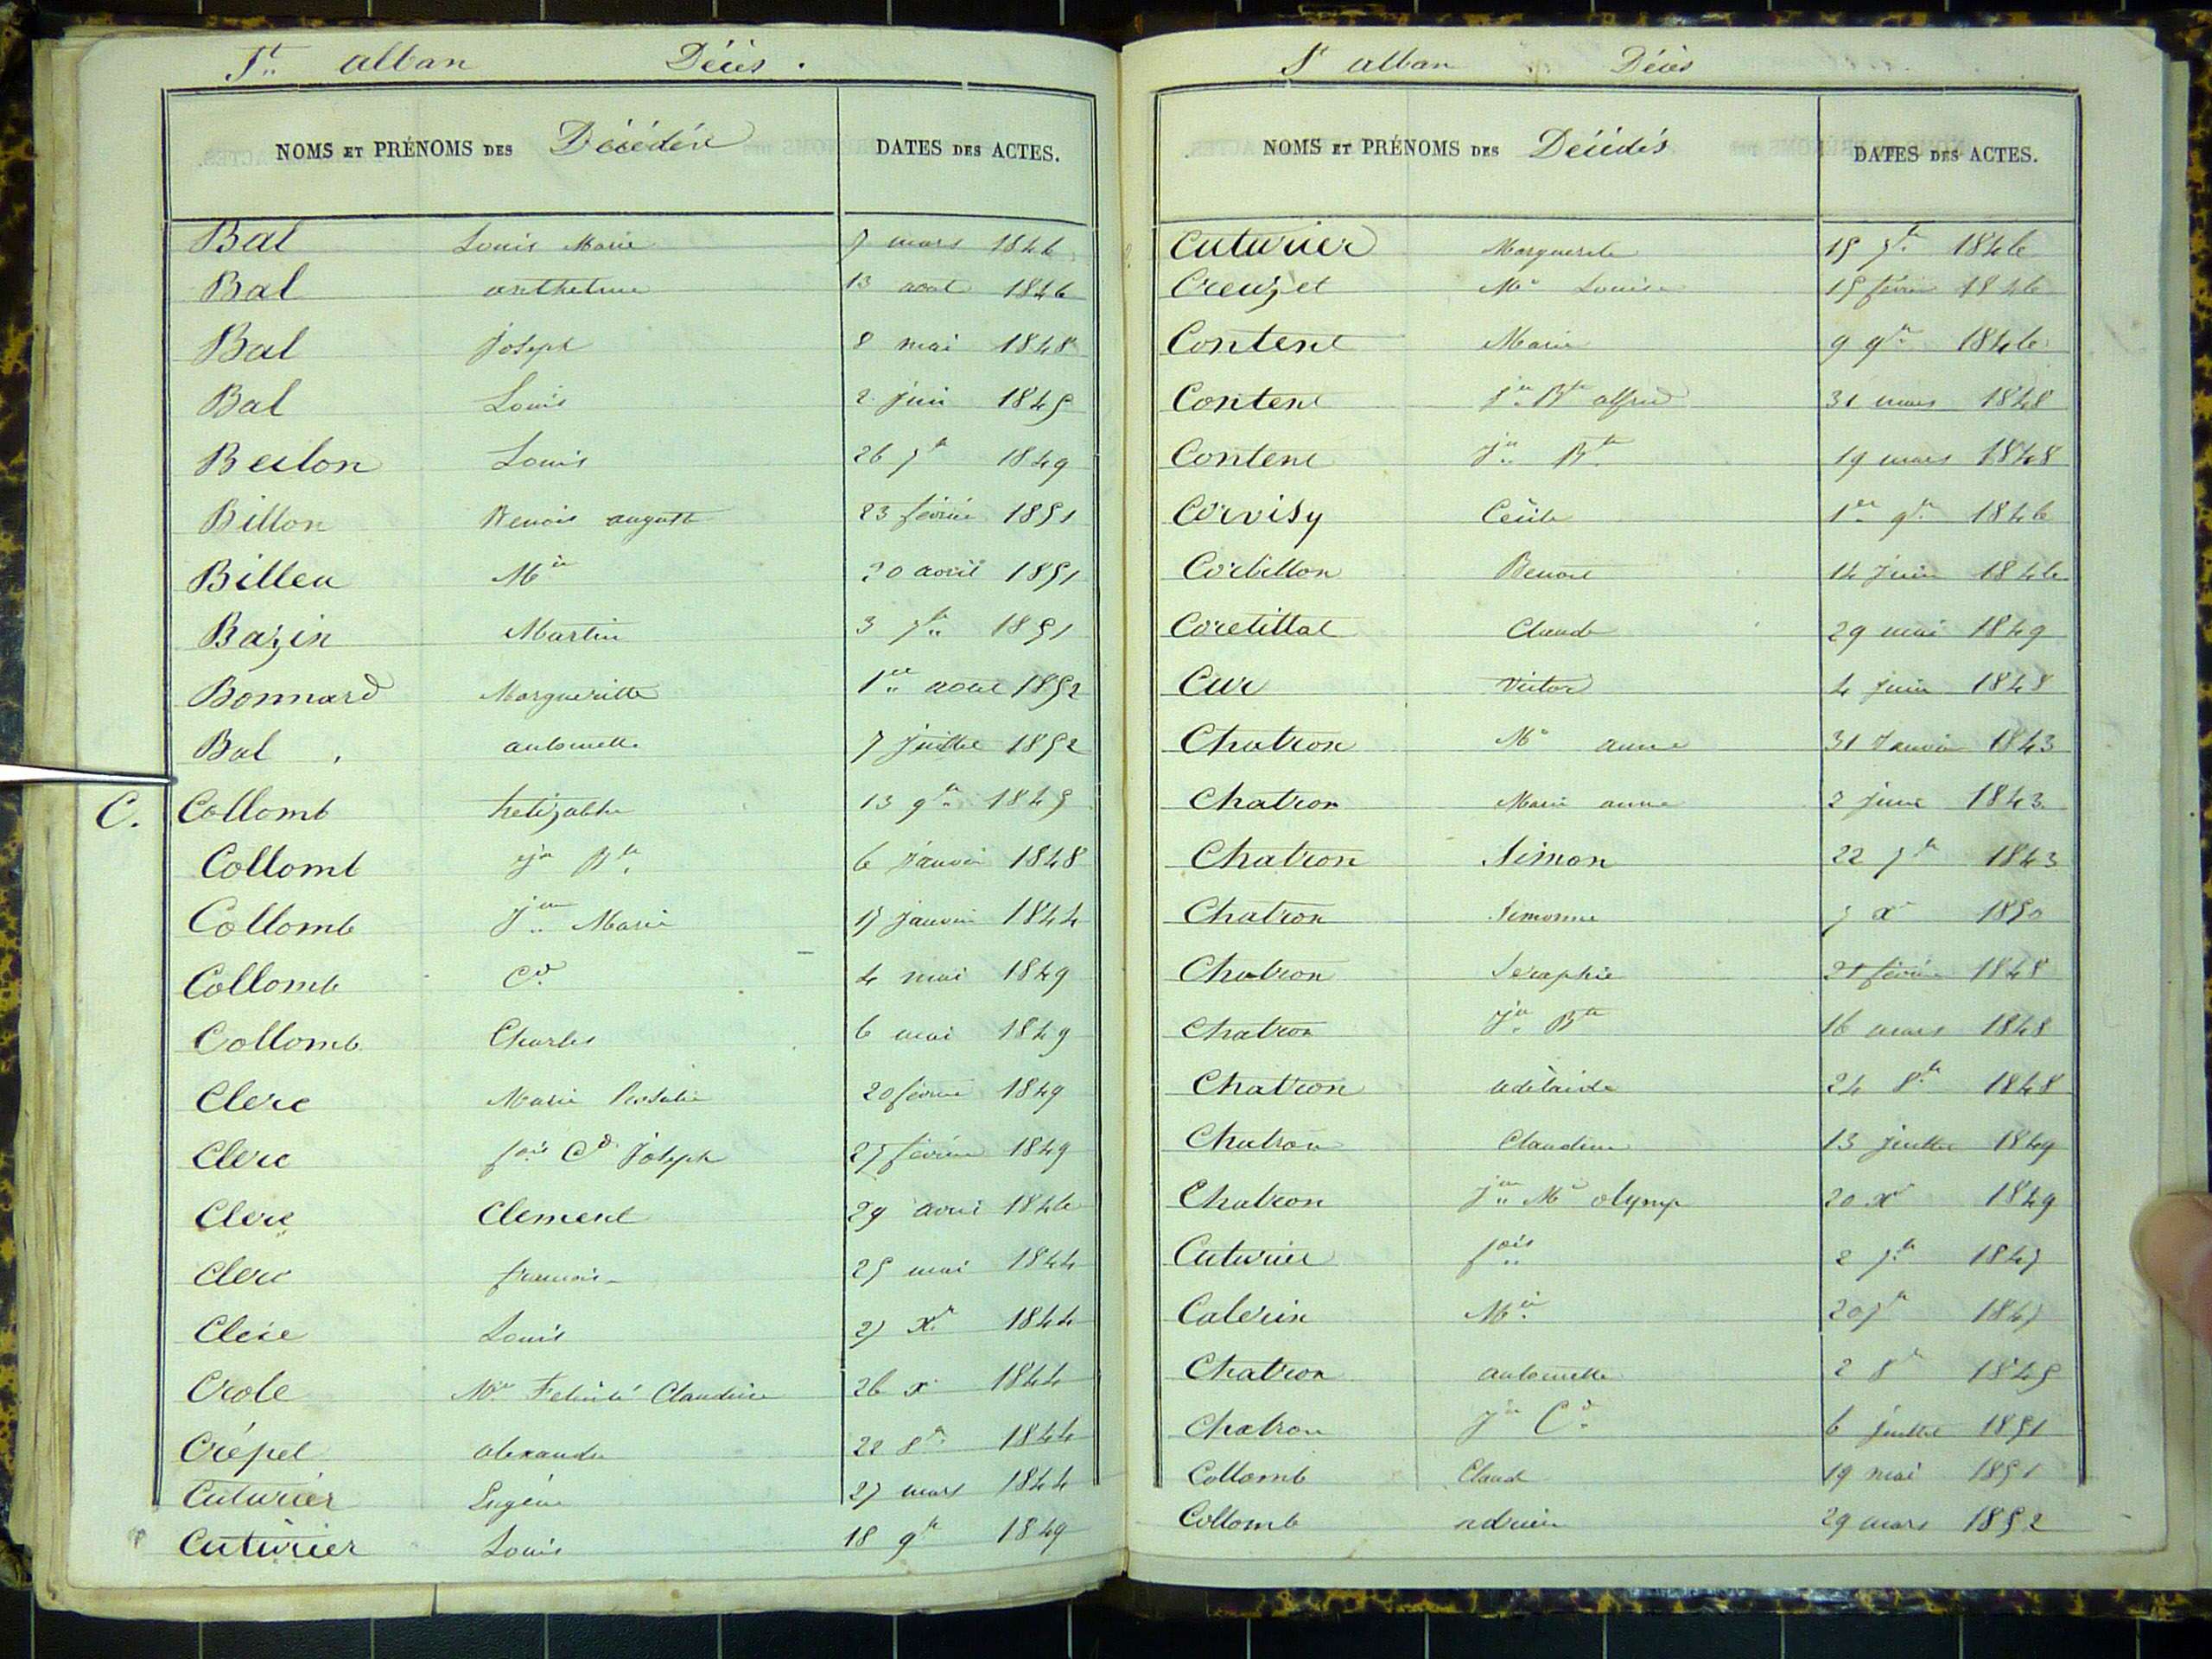 St alban Décès.
NOMS ET PRÉNOMS DES Décédés DATES DES ACTES.
Bal Louis Marie 7 mars 1846
Bal anthelme 13 aout 1846
Bal Joseph 8 mai 1848
Bal Louis 2 juin 1845
Beslon Louis 26 7bre 1849
Billon Benoit auguste 23 février 1851
Billea Mie 20 avril 1851
Bazin Martin 3 7bre 1851
Bonnard Margueritte 1er aout 1852
Bal antoinette 7 juillet 1852
C. Collomb 13 9bre 1845
Collomb Jn Bte 6 Janvier 1848
Collomb Jne Marie 17 Janvier 1844
Collomb Cd 4 mai 1849
Collomb Charles 6 mai 1849
Clerc Marie Rosalie 20 février 1849
Clerc fois Cd Joseph 27 février 1849
Clerc Clement 29 avril 1846
Clerc francois 25 mai 1844
Clerc Louis 27 Xbre 1844
Crole Mie Felicité Claudine 26 x 1844
Crépel alexandre 22 8bre 1844
Cuturier Eugène 27 mars 1844
Cuturier Louis 18 9bre 1849
St alban Décès
NOMS ET PRÉNOMS DES Décédés DATES DES ACTES.
Cuturier Marguerite 15 7bre 1846
Creuzet Me Louise 15 février 1846
Content Marie 9 9bre 1846
Content Jn Bte alfred 31 mars 1848
Content Jn Bte 19 mars 1848
Corvisy Cécile 1er 9bre 1846
Corbillon Benoit 14 Juin 1846
Coretittat Claude 29 mai 1849
Cur Victor 4 juin 1848
Chatron Me anne 31 Janvier 1843
Chatron Marie anne 2 juin 1843
Chatron Simon 22 7bre 1843
Chatron Simonne 7 x 1850
Chatron Seraphie 21 février 1848
Chatron Jn Bte 16 mars 1848
Chatron adélaide 24 8bre 1848
Chatron Claudine 13 juillet 1849
Chatron Jne Me olymp 20 Xe 1849
Cuturier fois 2 7bre 1847
Calerin Mie 20 7bre 1847
Chatron antoinette 2 8bre 1845
Chatron Jn Cd 6 juillet 1851
Collomb Claud 19 mai 1851
Collomb adrien 29 mars 1852